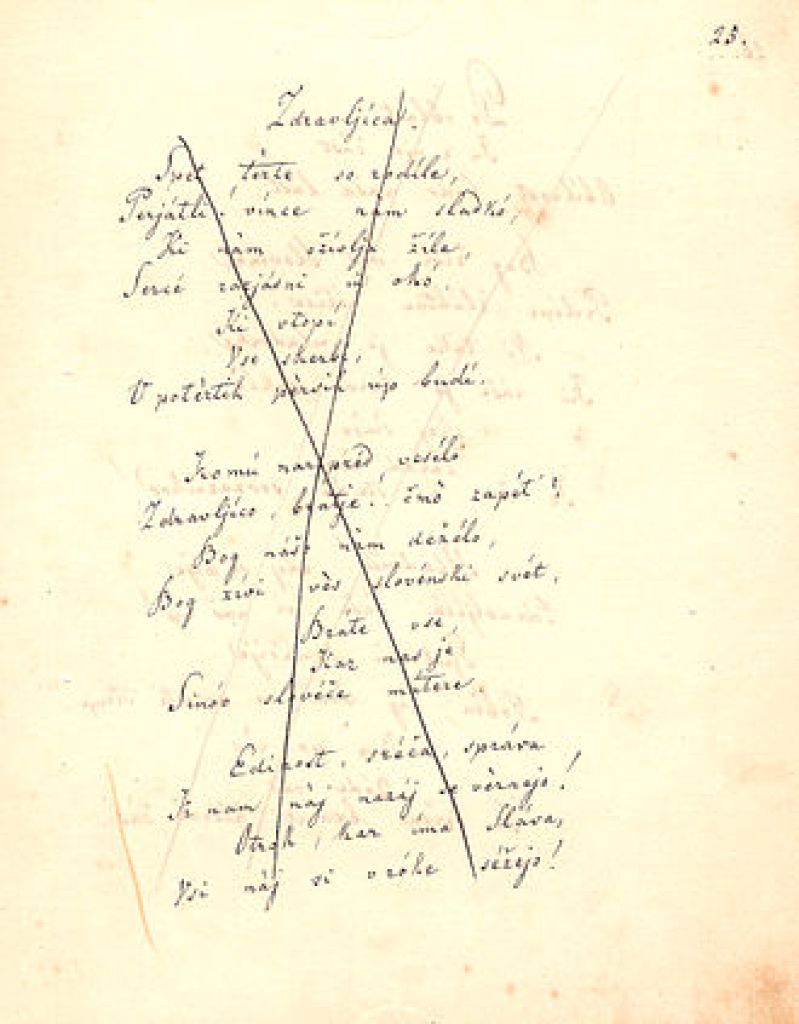 23.
Zdravljica.
Spet tèrte so rodíle,
Perjátli! vince nam sladkó,
Ki nam ožívlja žíle,
Sercé razjásni in okó.
Ki vtopí
Vse skerbí,
V potèrtih pèrsih up budí.
Komú narpred veséló
Zdravljíco, bratje! čmò zapét'?
Bog našo nam dežélo,
Bog žívi vès slovénski svét,
Bráte vse,
Kar nas je
Sinóv slovéče mátere.
Edinost, sréča, správa
K nam náj nazáj se vèrnejo!
Otrók, kar íma Sláva,
Vsi náj si v róke séžejo!